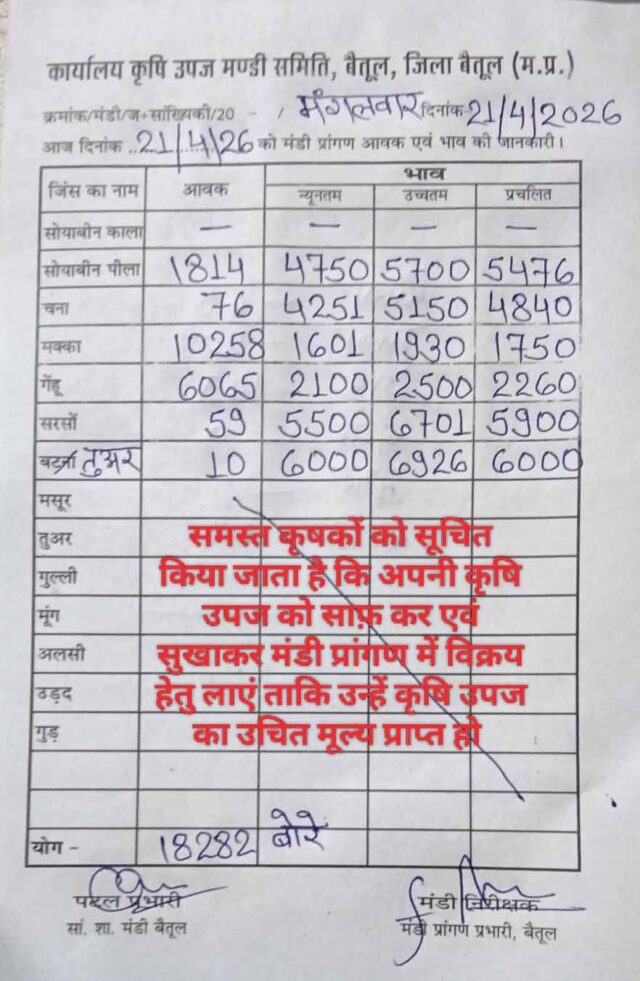 कार्यालय कृषि उपज मण्डी समिति, बैतूल, जिला बैतूल (म.प्र.)
क्रमांक/मंडी/ज+सांख्यिकी/20 - / मंगलवार दिनांक 21/4/2026
आज दिनांक 21/4/26 को मंडी प्रांगण आवक एवं भाव की जानकारी।
जिंस का नाम आवक भाव
न्यूनतम उच्चतम प्रचलित
सोयाबीन काला — — — —
सोयाबीन पीला 1814 4750 5700 5476
चना 76 4251 5150 4840
मक्का 10258 1601 1930 1750
गेंहू 6065 2100 2500 2260
सरसों 59 5500 6701 5900
तुअर 10 6000 6926 6000
मसूर
तुअर
गुल्ली
मूंग
अलसी
उड़द
गुड़
समस्त कृषकों को सूचित
किया जाता है कि अपनी कृषि
उपज को साफ़ कर एवं
सुखाकर मंडी प्रांगण में विक्रय
हेतु लाएं ताकि उन्हें कृषि उपज
का उचित मूल्य प्राप्त हो
योग - 18282 बोरे
प्रभारी
सां. शा. मंडी बैतूल
मंडी निरीक्षक
मंडी प्रांगण प्रभारी, बैतूल